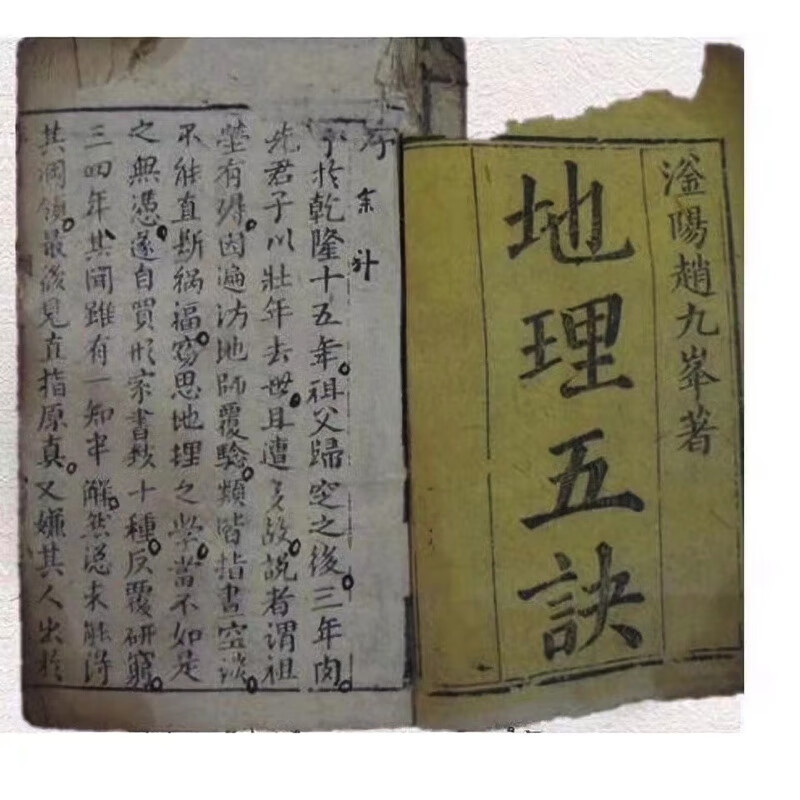 滏陽趙九峯著
地理五訣
序
予於乾隆十五年。祖父歸空之後。三年内。
先君子以壯年去世。且遭多故。説者謂祖
塋有碍。因遍访地師覆驗。類皆指畫空談。
不能直斷禍福。窃思地理之学。當不如是
之無憑。遂自買形家書数十種。反覆研窮。
三四年。其間雖有一知半觧。然總未能得
其綱領。最後見直指原真。又嫌其人出於